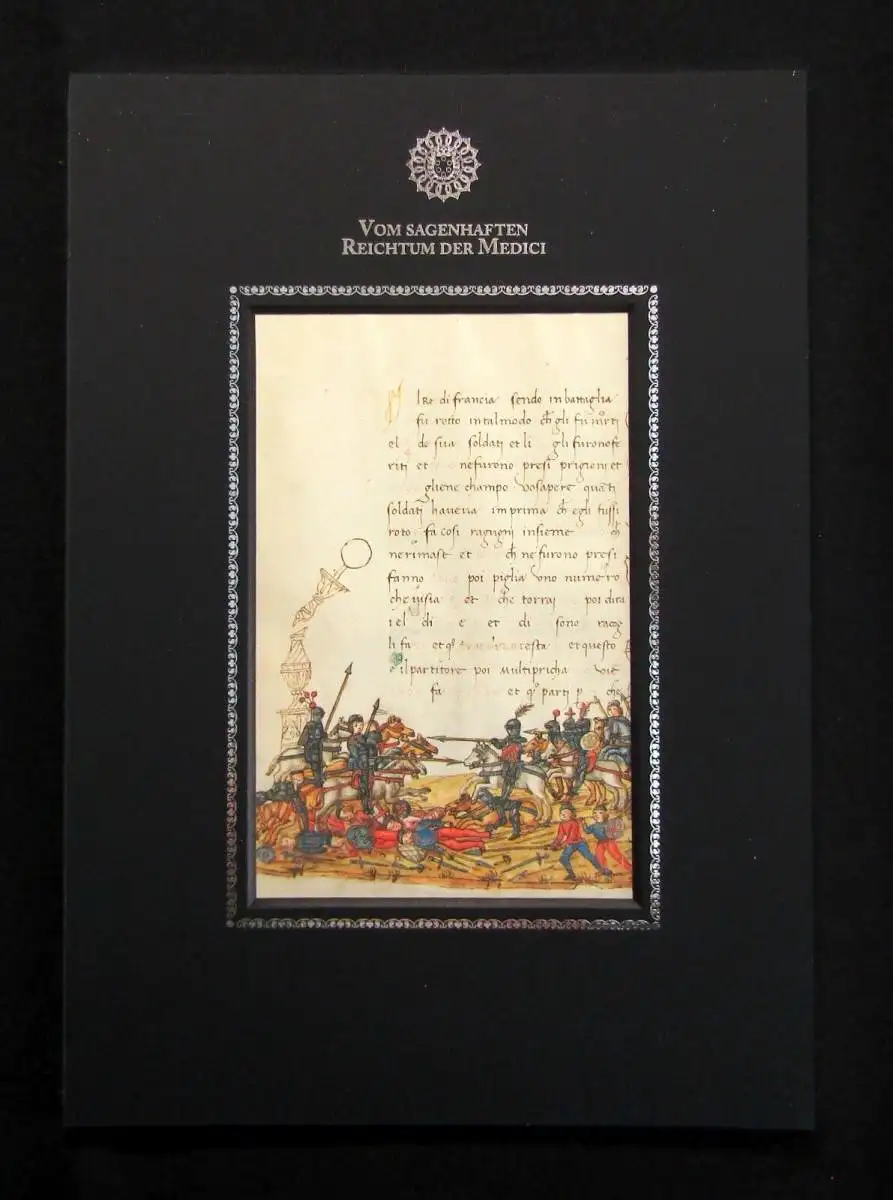 VOM SAGENHAFTEN
REICHTUM DER MEDICI
l Re di francia sendo in battaglia
fu rotto in talmodo ch gli fu morti
el de sua soldati et li gli furono fe
riti et ne furono presi prigioni et
gliene champo vo sapere quati
soldati haveva imprima ch egli fussi
roto fa cosi ragugni insieme ch
ne rimast et ch ne furono presi
fanno poi piglia uno numero
che et che torrai poi dira
i el di e et di sono racog
li fa et questo
e il partitore poi multipricha
fa et parti che